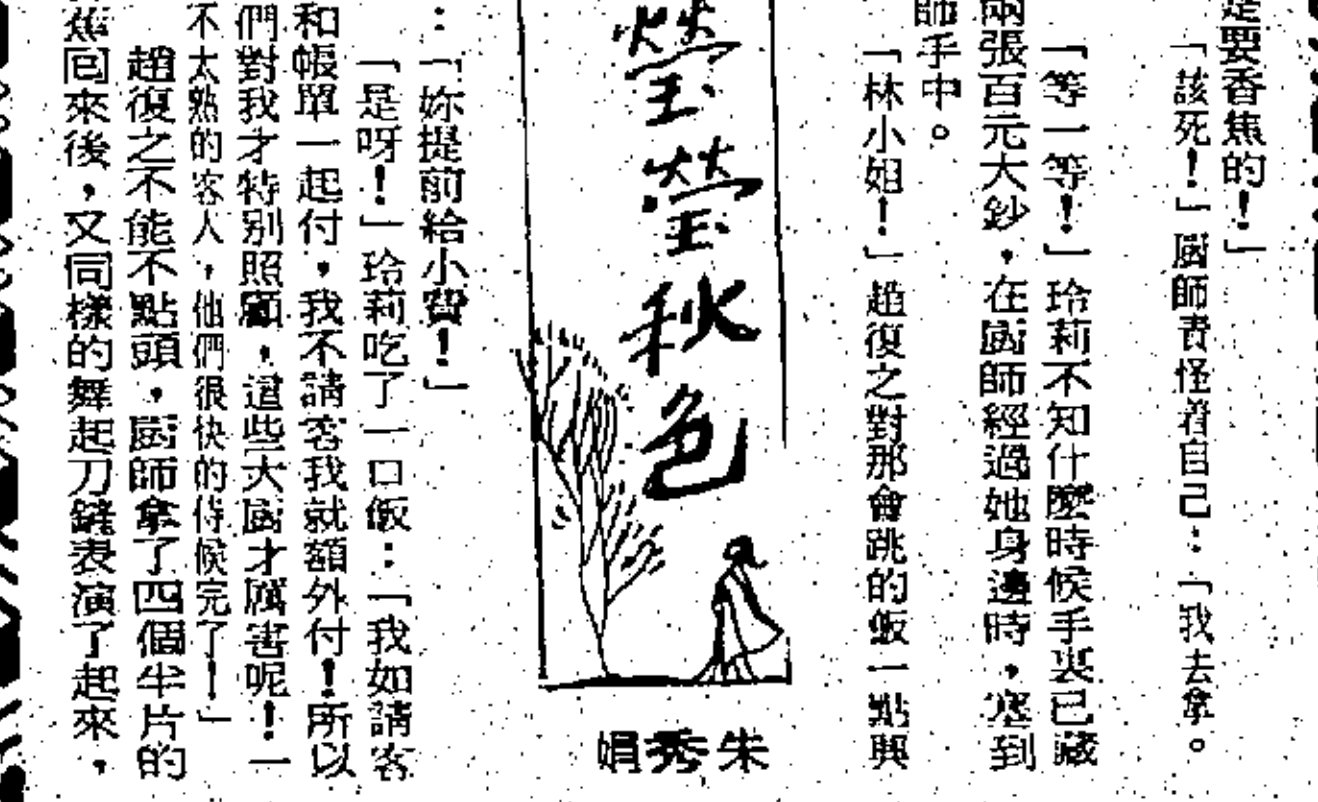 是要香焦的！」
「該死！」廚師責怪着自己：「我去拿。
「等一等！」玲莉不知什麼時候手裏已藏
兩張百元大鈔，在廚師經過她身邊時，塞到
師手中。
「林小姐！」趙復之對那會跳的飯一點興
瑩瑩秋色
朱秀娟
：「妳提前給小費！」
「是呀！」玲莉吃了一口飯：「我如請客
和帳單一起付，我不請客我就額外付！所以
們對我才特別照顧，這些大廚才厲害呢！一
不太熟的客人，他們很快的侍候完了！」
趙復之不能不點頭，廚師拿了四個半片的
焦回來後，又同樣的舞起刀鏟表演了起來，